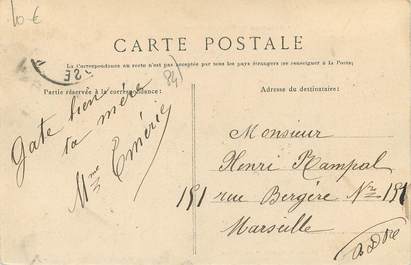 10 €
CARTE POSTALE
La Correspondance au recto n'est pas acceptée par tous les pays étrangers (se renseigner à la Poste)
Partie réservée à la correspondance:
Adresse du destinataire:
84
Gate bien
ta mère
Mme Eméric
Monsieur
Henri Rampal
191 rue Bergère Nre 191
Marseille